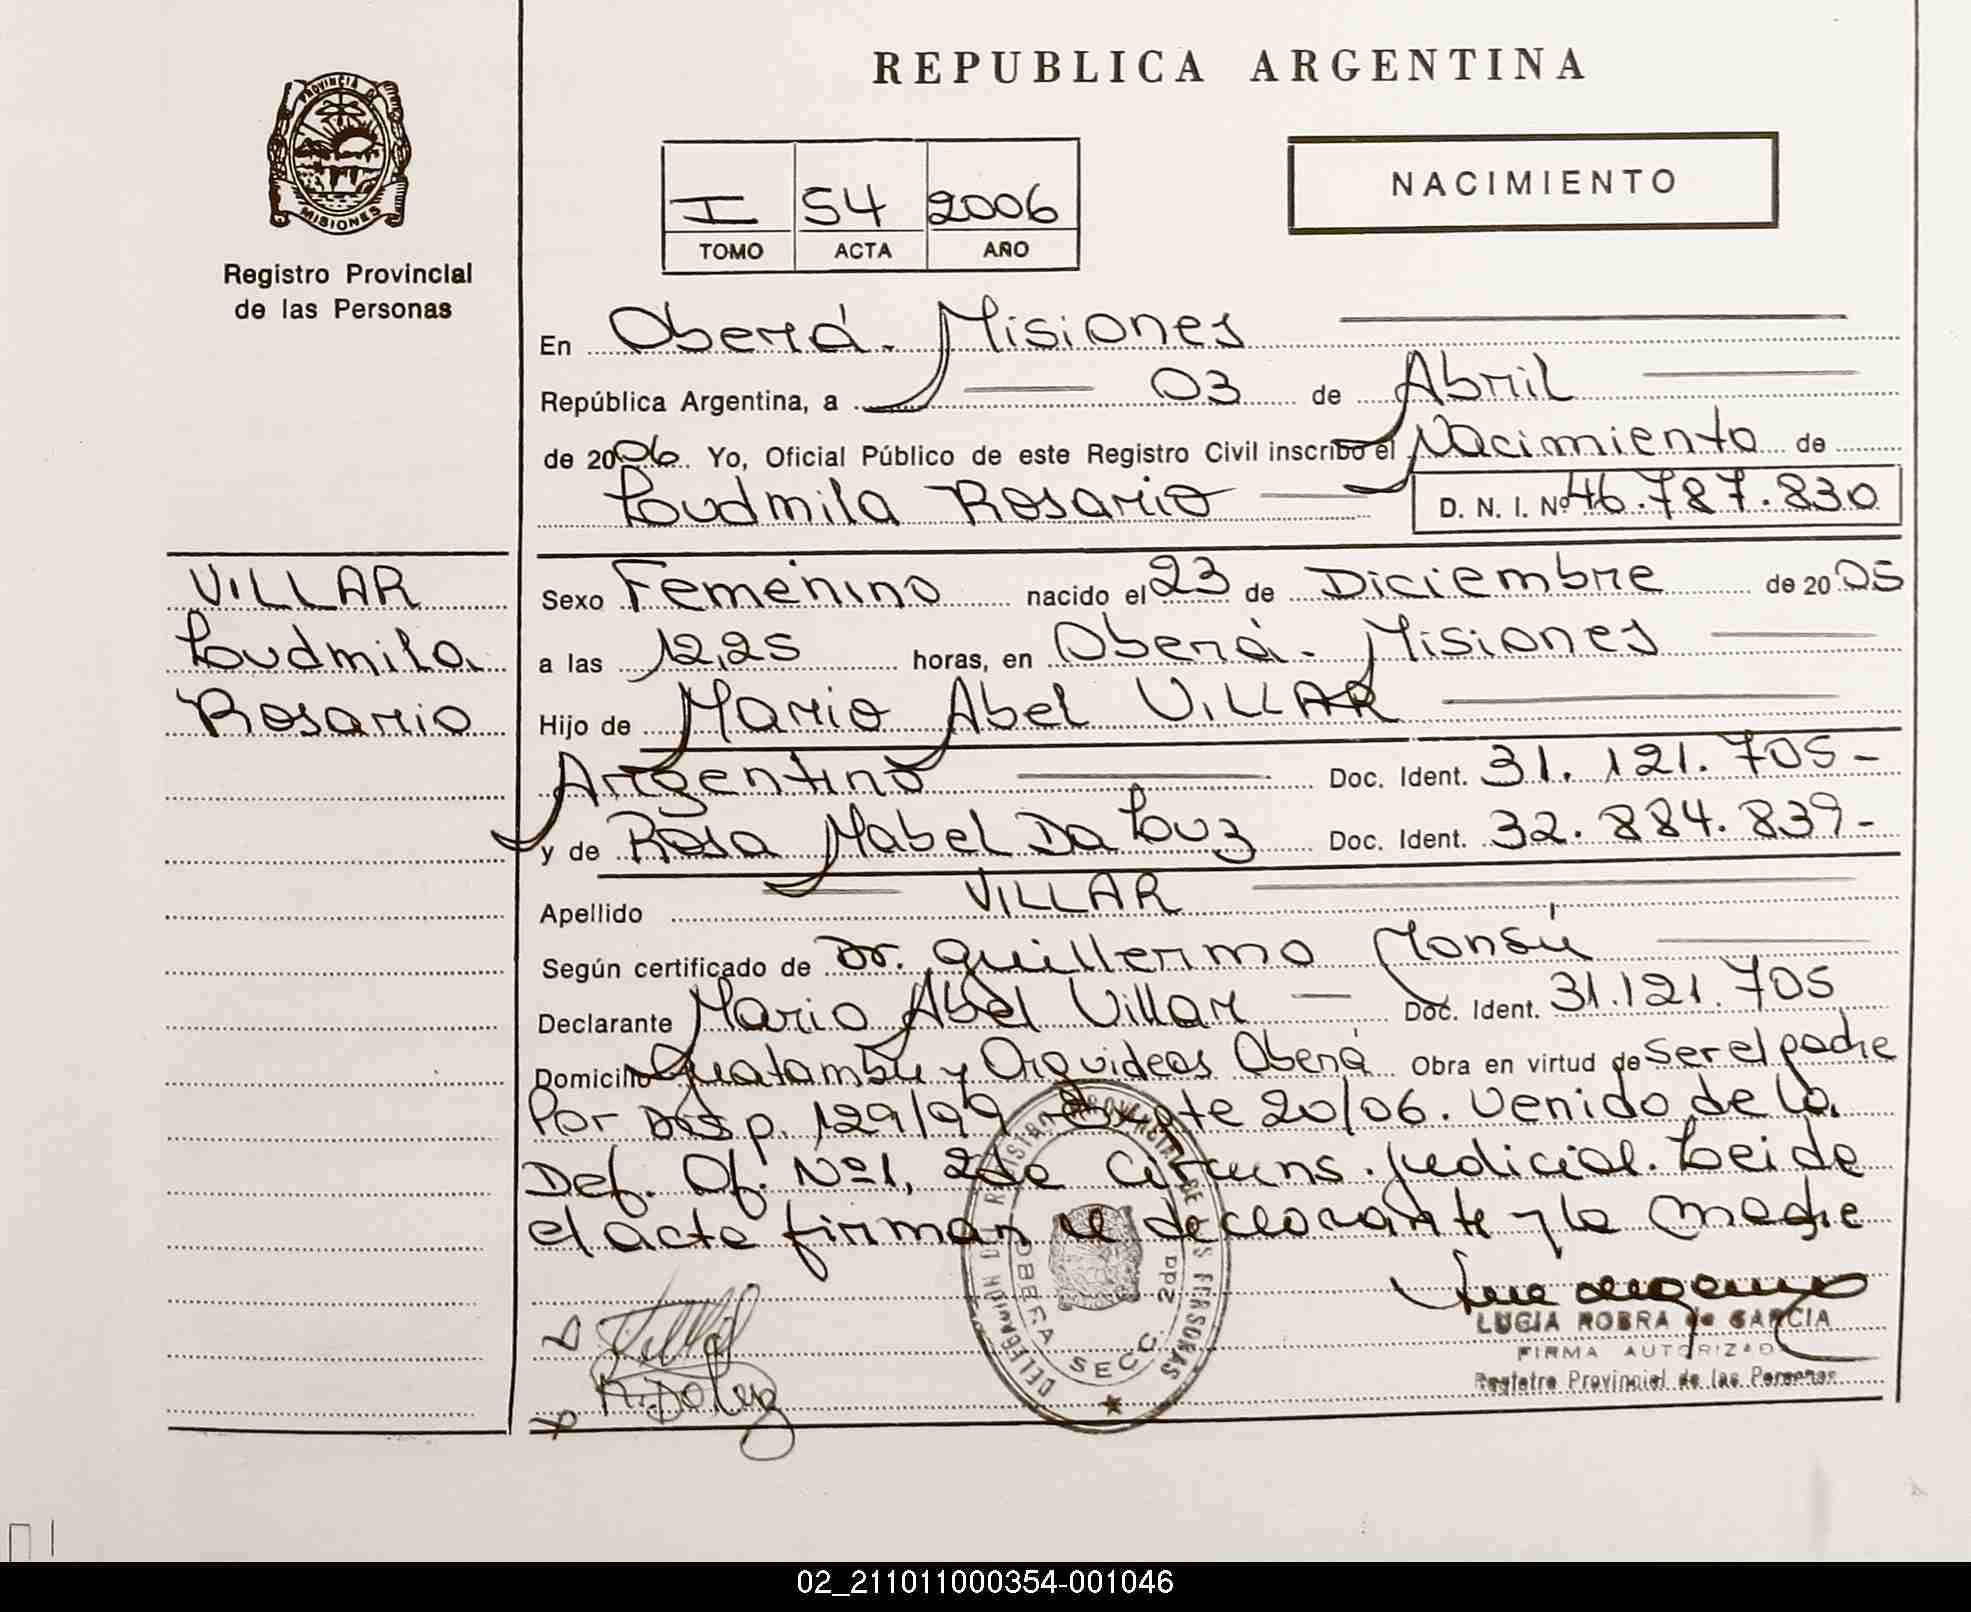 REPUBLICA ARGENTINA
PROVINCIA DE
MISIONES
Registro Provincial
de las Personas
I 54 2006
TOMO ACTA AÑO
NACIMIENTO
En Oberá. Misiones
República Argentina, a 03 de Abril
de 2006 Yo, Oficial Público de este Registro Civil inscribo el Nacimiento de
Ludmila Rosario D. N. I. Nº 46.787.830
VILLAR
Ludmila
Rosario
Sexo Femenino nacido el 23 de Diciembre de 2005
a las 12,25 horas, en Oberá. Misiones
Hijo de Mario Abel VILLAR
Argentino Doc. Ident. 31.121.705-
y de Rosa Mabel Da Luz Doc. Ident. 32.884.839-
Apellido VILLAR
Según certificado de Dr. Guillermo Monsú
Declarante Mario Abel Villar Doc. Ident. 31.121.705
Domicilio Guatambú y Orquideas Oberá Obra en virtud de ser el padre
Por Disp. 129/99 Expte 20/06. Venido de la
Def. Of. Nº1, 2da Circuns. Judicial. Leida
el acta firman el declarante y la madre
DELEGACION DE REGISTRO PROVINCIAL DE LAS PERSONAS
OBERA SECC. 2da
Villar
R. Da Luz
LUCIA ROBRA de GARCIA
FIRMA AUTORIZADA
Registro Provincial de las Personas
02_211011000354-001046